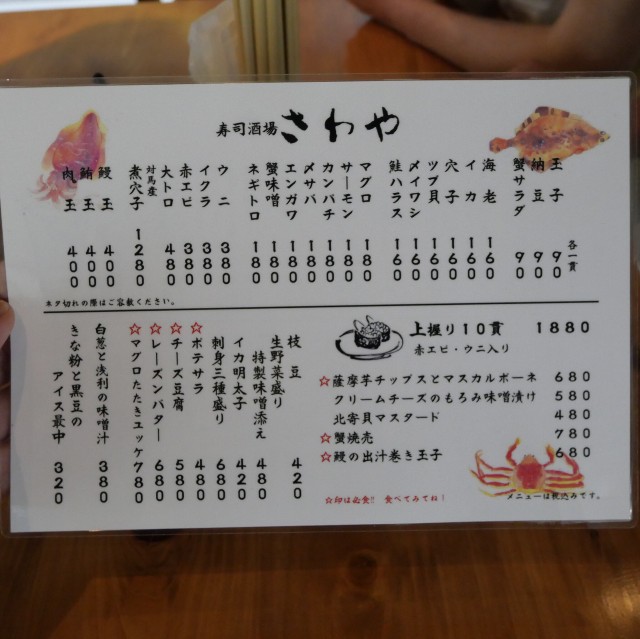 寿司酒場 さわや
各一貫
玉子 90
納豆 90
蟹サラダ 90
海老 160
イカ 160
穴子 160
ツブ貝 160
メイワシ 160
鮭ハラス 160
マグロ 180
サーモン 180
カンパチ 180
メサバ 180
エンガワ 180
蟹味噌 180
ネギトロ 180
ウニ 380
イクラ 380
赤エビ 380
大トロ 480
対馬産 煮穴子 1280
鰻玉 400
鮪玉 400
肉玉 400
ネタ切れの際はご容赦ください。
上握り10貫 1880
赤エビ・ウニ入り
☆薩摩芋チップスとマスカルポーネ 680
クリームチーズのもろみ味噌漬け 580
北寄貝マスタード 480
☆蟹焼売 780
☆鰻の出汁巻き玉子 680
☆印は必食!! 食べてみてね!
メニューは税込みです。
枝豆 420
生野菜盛り
特製味噌添え 480
イカ明太子 420
刺身三種盛り 680
☆ポテサラ 480
☆チーズ豆腐 580
☆レーズンバター 680
☆マグロたたきユッケ 780
白葱と浅利の味噌汁 380
きな粉と黒豆の
アイス最中 320